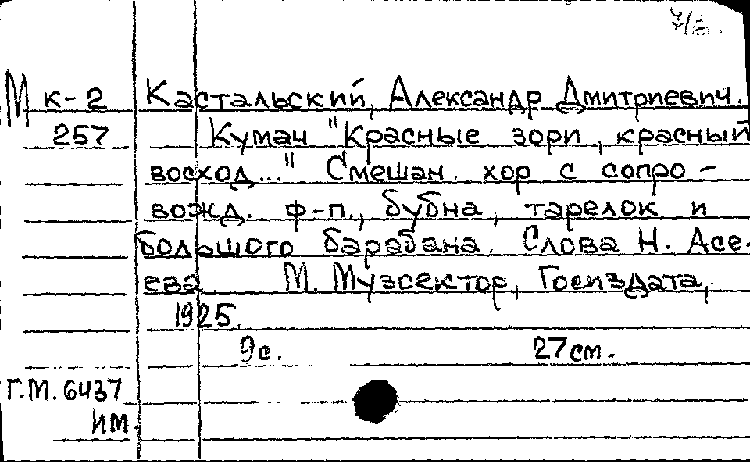 М к-2 Кастальский, Александр Дмитриевич.
257 Кумач "Красные зори, красный
восход..." Смешан. хор с сопро-
вожд. ф-п., бубна, тарелок и
большого барабана. Слова Н. Асе-
ева. М. Музсектор, Госиздата,
1925.
9с. 27см.
Г.М. 6437
им.